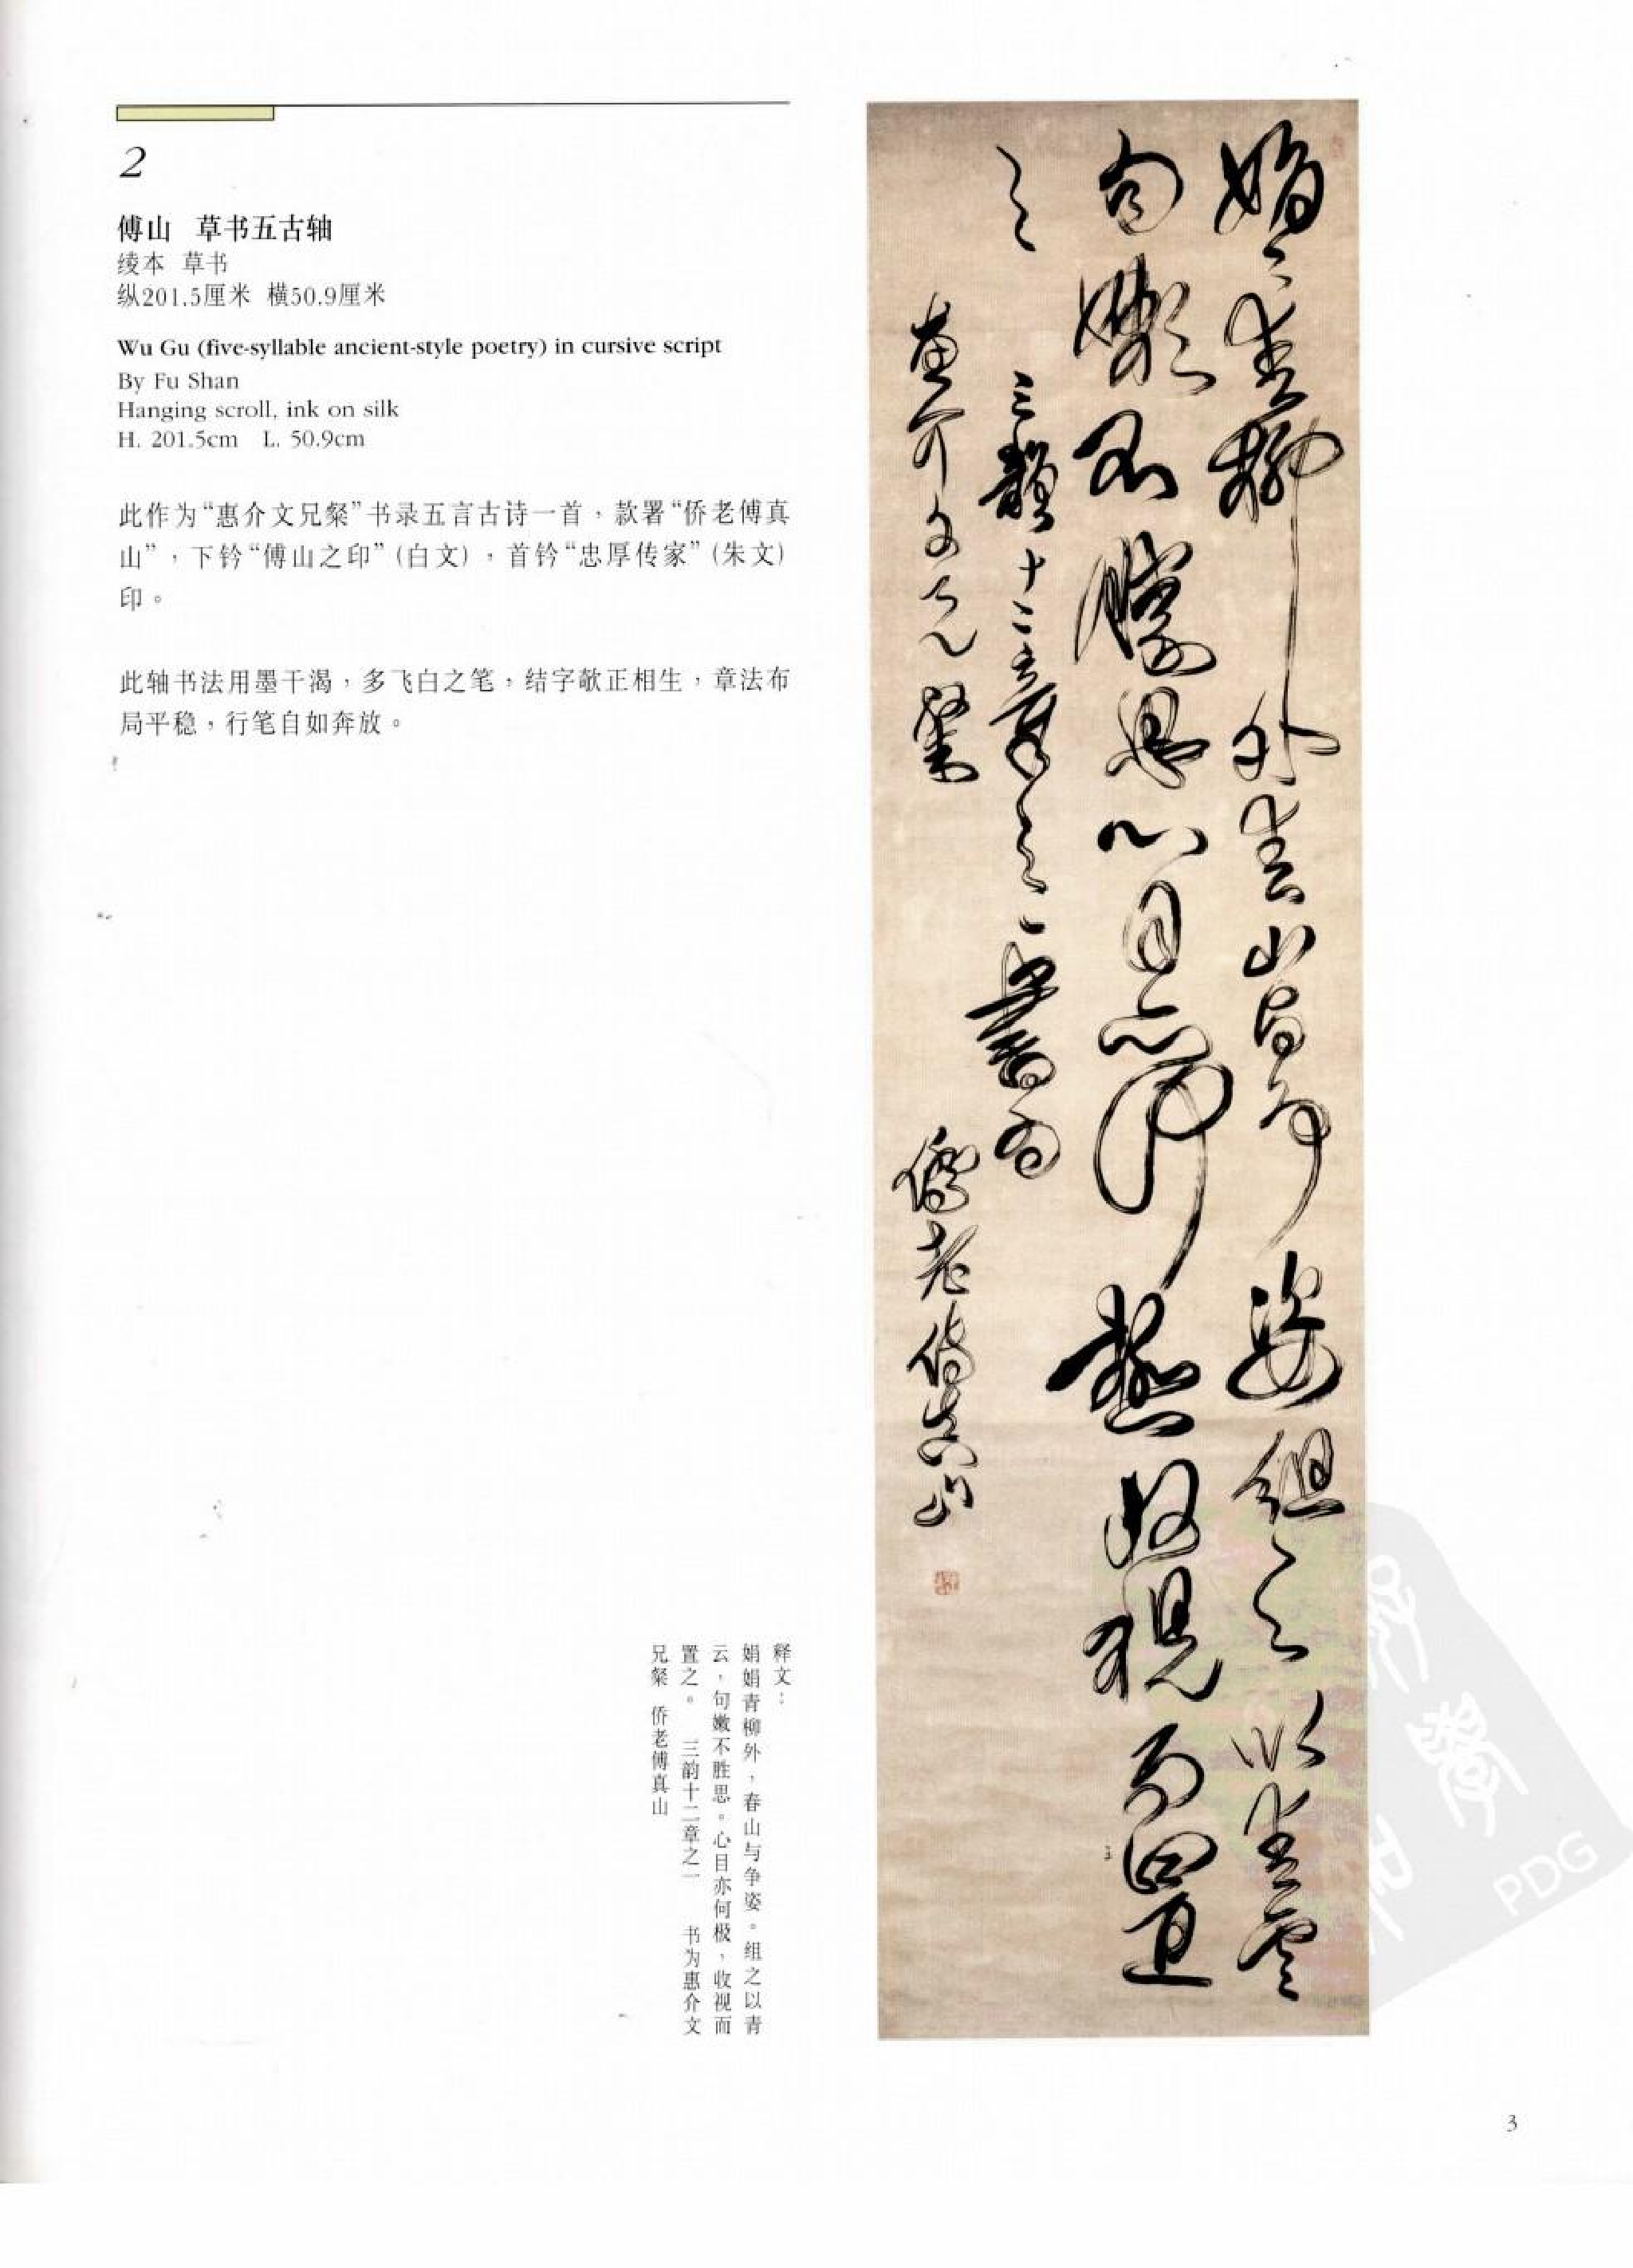 2
傅山 草书五古轴
绫本 草书
纵201.5厘米 横50.9厘米
Wu Gu (five-syllable ancient-style poetry) in cursive script
By Fu Shan
Hanging scroll, ink on silk
H. 201.5cm L. 50.9cm
此作为“惠介文兄粲”书录五言古诗一首，款署“侨老傅真
山”，下钤“傅山之印”（白文），首钤“忠厚传家”（朱文）
印。
此轴书法用墨干渴，多飞白之笔，结字欹正相生，章法布
局平稳，行笔自如奔放。
释文：
娟娟青柳外，春山与争姿。组之以青
云，句嫩不胜思。心目亦何极，收视而
置之。 三韵十二章之一 书为惠介文
兄粲 侨老傅真山
娟〻青柳外春山与争姿组之以青雲
句嫩不勝思心目亦何極收視而置
之
三韻十二章之一書為
惠介文兄粲
僑老傅真山
PDG
3